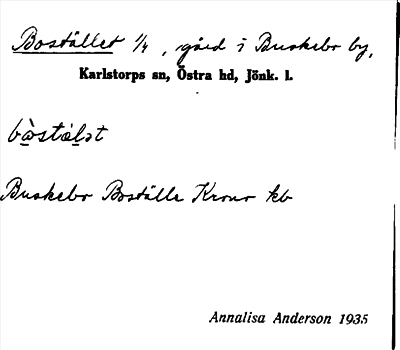 Bostället 1/4, gård i Buskebo by,
Karlstorps sn, Östra hd, Jönk. l.
bòstälət
Buskebo Boställe Krono kb
Annalisa Anderson 1935